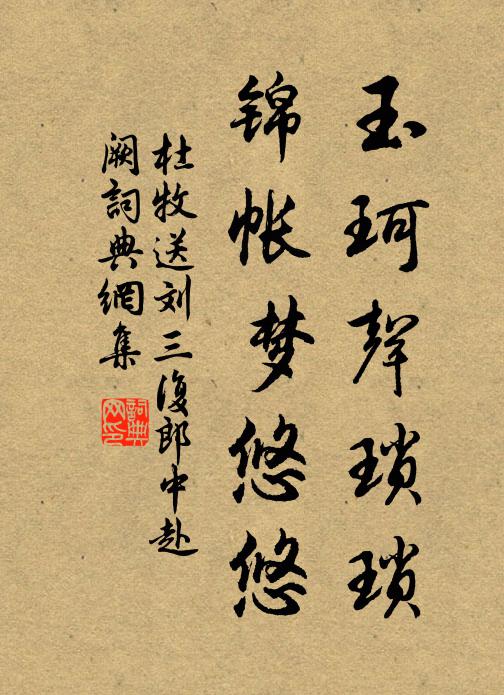 玉珂聲瑣瑣
锦帐梦悠悠
杜牧送刘三復郎中赴
阙詞典網集
詞典网印